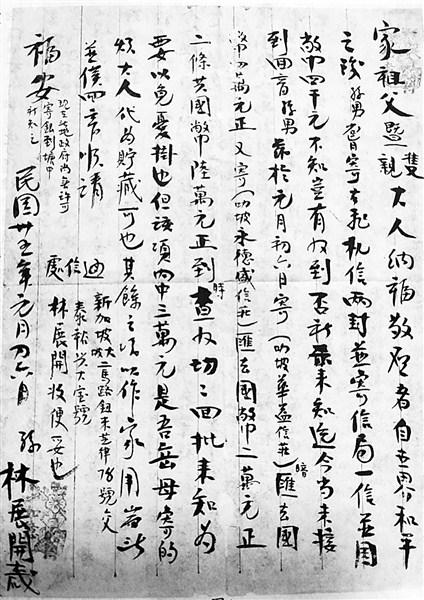 家祖父暨雙親大人納福敬啓者自世界和平
之後孫男曾寄去飛机信兩封並寄信局一信並國
幣四千元不知查有収到否祈來知迄今尚未接
到回音孫男於元月初六日寄(叻坡華益信莊)暗匯去國
幣四萬元正又寄(叻坡永德盛信莊)匯去國幣二萬元正
二條共國幣陸萬元正到時查収切切回批來知為
要以免憂掛也但該項內中三萬元是吾岳母寄的
煩大人代為貯藏可也其餘之項以作家用耑此
並候回音順請
福安
現在此政府尚無許可
寄銀到塘中
祈知之
通信處
新加坡大坡二馬路鈕末芝律78號交
泰裕興大寶號
林展開收便妥也
民國卅五年元月初六日 孫 林展開